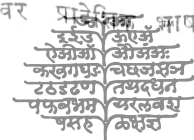 वर प्रादेशिक भाष
इईउ ऊएॲ
ऐओऑ औअंअः
कखगघङ चछजझञ
टठडढण तथदधन
पफबभम यरलवश
षसह ळक्षज्ञ